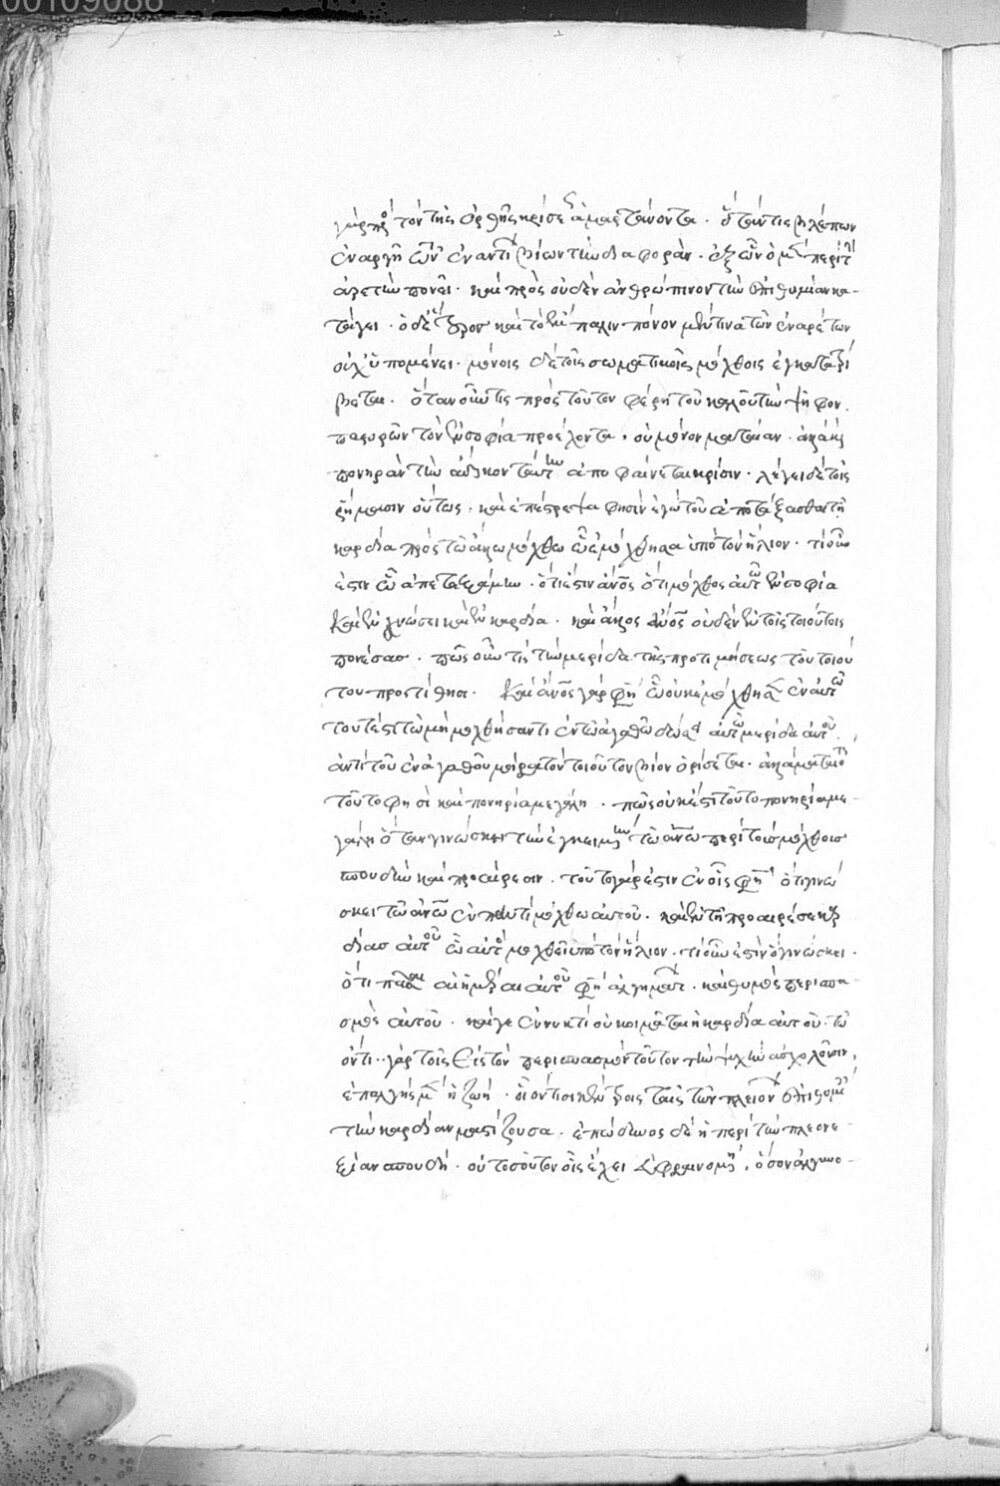 00109086
γὰρ πρὸς τὸν τῆς ὀρθῆς κρίσεως ἁμαρτάνοντα. ὅταν τις βλέπων
ἐναργῆ τῶν ἐναντίων βίων τὴν διαφορὰν. ἐξ ὧν ὁ μὲν περὶ τὴν
ἀρετὴν πονεῖ. καὶ πρὸς οὐδὲν ἀνθρώπινον τὴν ἐπιθυμίαν κα-
τάγει. ὁ δὲ πάλιν πόνον μέν τινα τῶν ἐναρέτων
οὐχ ὑπομένει. μόνοις δὲ τοῖς σωματικοῖς μόχθοις ἐγκατατρί
βεται. ὅταν οὖν τις πρὸς τοῦτον φέρη τοῦ καλοῦ τὴν ψῆφον.
παρορῶν τὸν ἐν σοφία προέχοντα, οὐ μόνον ματαίαν. ἀλλὰ καὶ
πονηρὰν τὴν ἄδικον ταύτην ἀποφαίνεται κρίσιν. λέγει δὲ τοῖς
ῥήμασιν οὕτως. καὶ ἐπέστρεψα φησὶν ἐγὼ τοῦ ἀποτάξασθαι τῇ
καρδία πρὸς τῶ ἄλλω μόχθω ὧ ἐμόχθησα ὑπὸ τὸν ἥλιον. τί οὖν
ἐστιν ὧ ἀπεταξάμην. ὅτι ἐστὶν ἄνος ὅτι μόχθος αὐτῶ ἐν σοφία
καὶ ἐν γνώσει καὶ ἐν καρδία. καὶ ἄλλος ἄνος οὐδὲν ἐν τοῖς τοιούτοις
πονέσας. πῶς οὖν τις τὴν μερίδα τῆς προτιμήσεως τοῦ τοιού
του προστίθησι. καὶ ἄνος γάρ φη ὧ οὐκ ἐμόχθησεν ἐν αὐτῶ
τουτέστι τῶ μὴ μοχθήσαντι ἐν τῶ ἀγαθῶ δώσει αὐτῶ μερίδα αὐτοῦ.
ἀντὶ τοῦ ἐν ἀγαθοῦ μοίρα τὸν τοιοῦτον βίον ὁρίσεται. ἀλλὰ ματαιότης
τοῦτο φησὶ καὶ πονηρία μεγάλη. πῶς οὐκ ἔστι τοῦτο πονηρία με-
γάλη ὅταν γινώσκει τὴν ἐγκειμένην τῶ ἄνω περὶ τοῖς μόχθοις
σπουδὴν καὶ προαίρεσιν. τοῦτο γάρ ἐστιν ἐν οἷς φη ὅτι γινώ
σκει τῶ ἄνω ἐν παντὶ μόχθω αὐτοῦ. καὶ ἐν τῇ προαιρέσει καρ
δίας αὐτοῦ ὧ αὐτὸς μοχθεῖ ὑπὸ τὸν ἥλιον. τί οὖν ἐστὶν ὃ γινώσκει.
ὅτι πᾶσαι αἱ ἡμέραι αὐτοῦ φη ἀλγημάτων. καὶ θυμὸς περισπα-
σμὸς αὐτοῦ. καί γε ἐν νυκτὶ οὐ κοιμᾶται ἡ καρδία αὐτοῦ. τῶ
ὄντι γὰρ τοῖς εἰς τὸν περισπασμὸν τοῦτον τὴν ψυχὴν ἀσχολοῦσιν,
ἐπαλγὴς μὲν ἡ ζωή. οἷόν τισι κέντροις ταῖς τῶν πλειόνων ἐπιθυμίαις
τὴν καρδίαν μαστίζουσα. ἐπώδυνος δὲ ἡ περὶ τὴν πλεονε-
ξίαν σπουδή. οὐ τοσοῦτον οἷς ἔχει εὐφραινομένη, ὅσον ἀλγυνο-